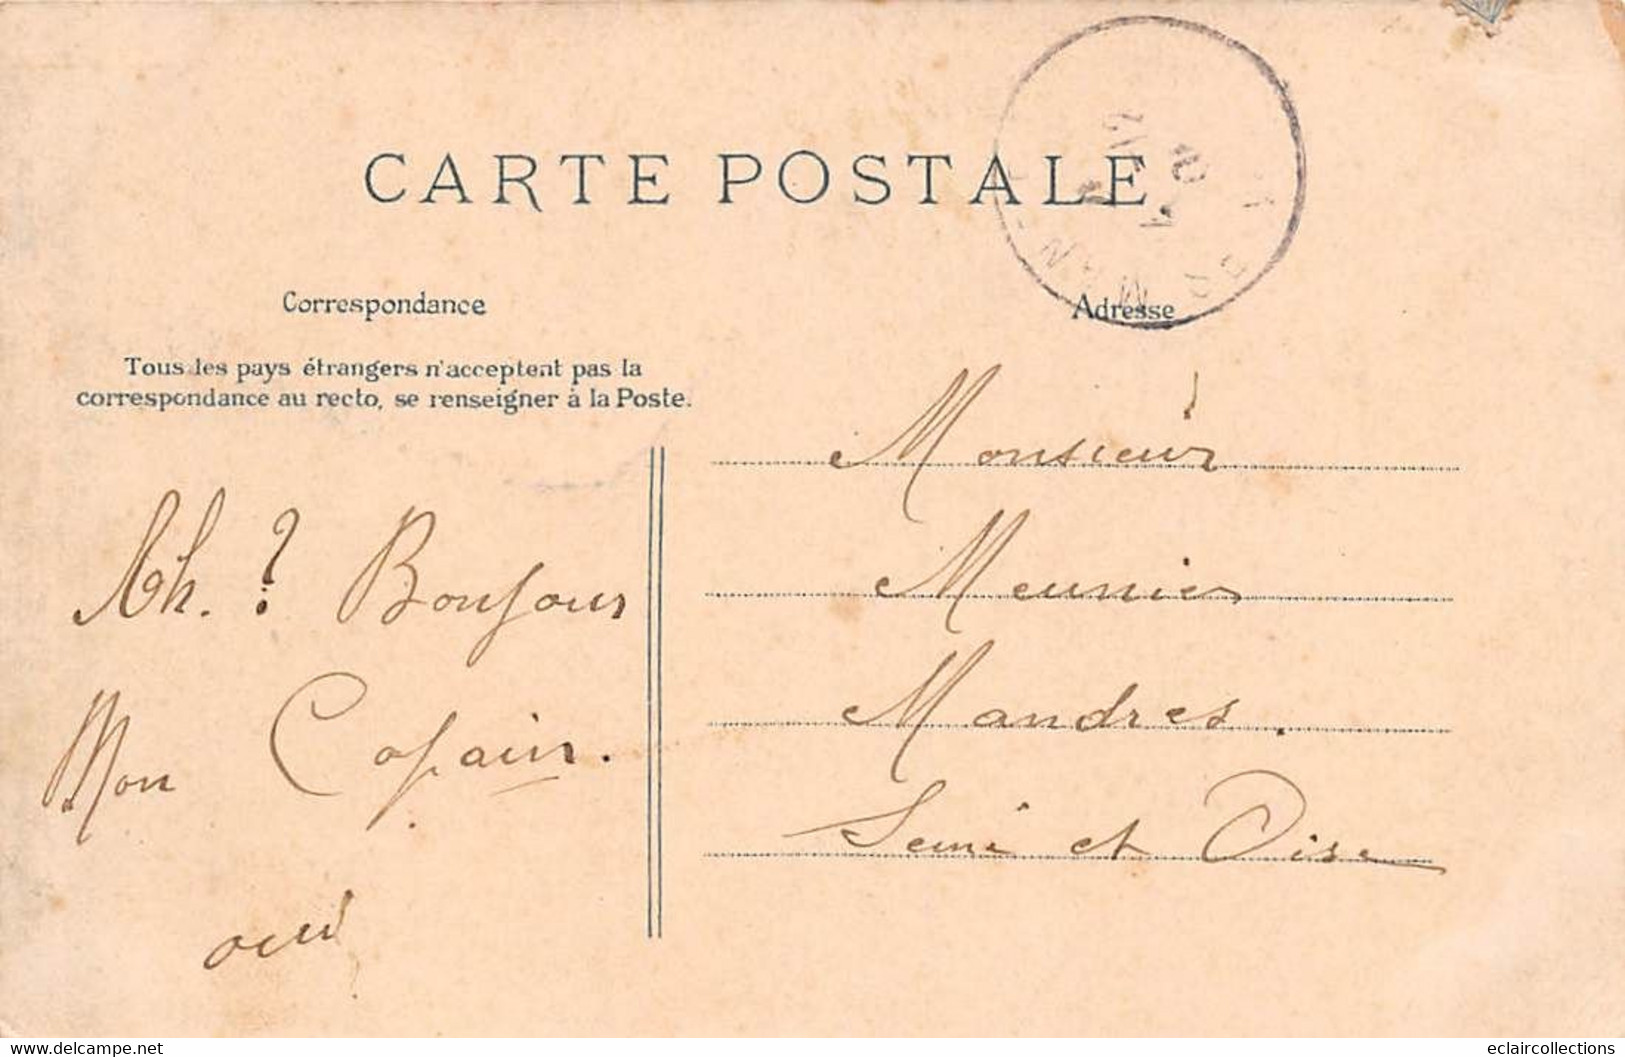 CARTE POSTALE
Correspondance
Adresse
Tous les pays étrangers n'acceptent pas la
correspondance au recto, se renseigner à la Poste.
Monsieur
Meunier
Mandres.
Seine et Oise
Ah. ? Bonjour
Mon Copain.
oui
delcampe.net
eclaircollections